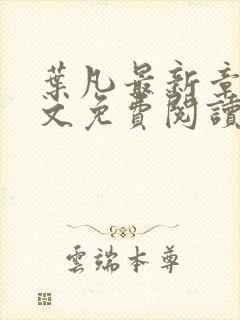 葉凡最新章
文免費閱讀
雲端本尊